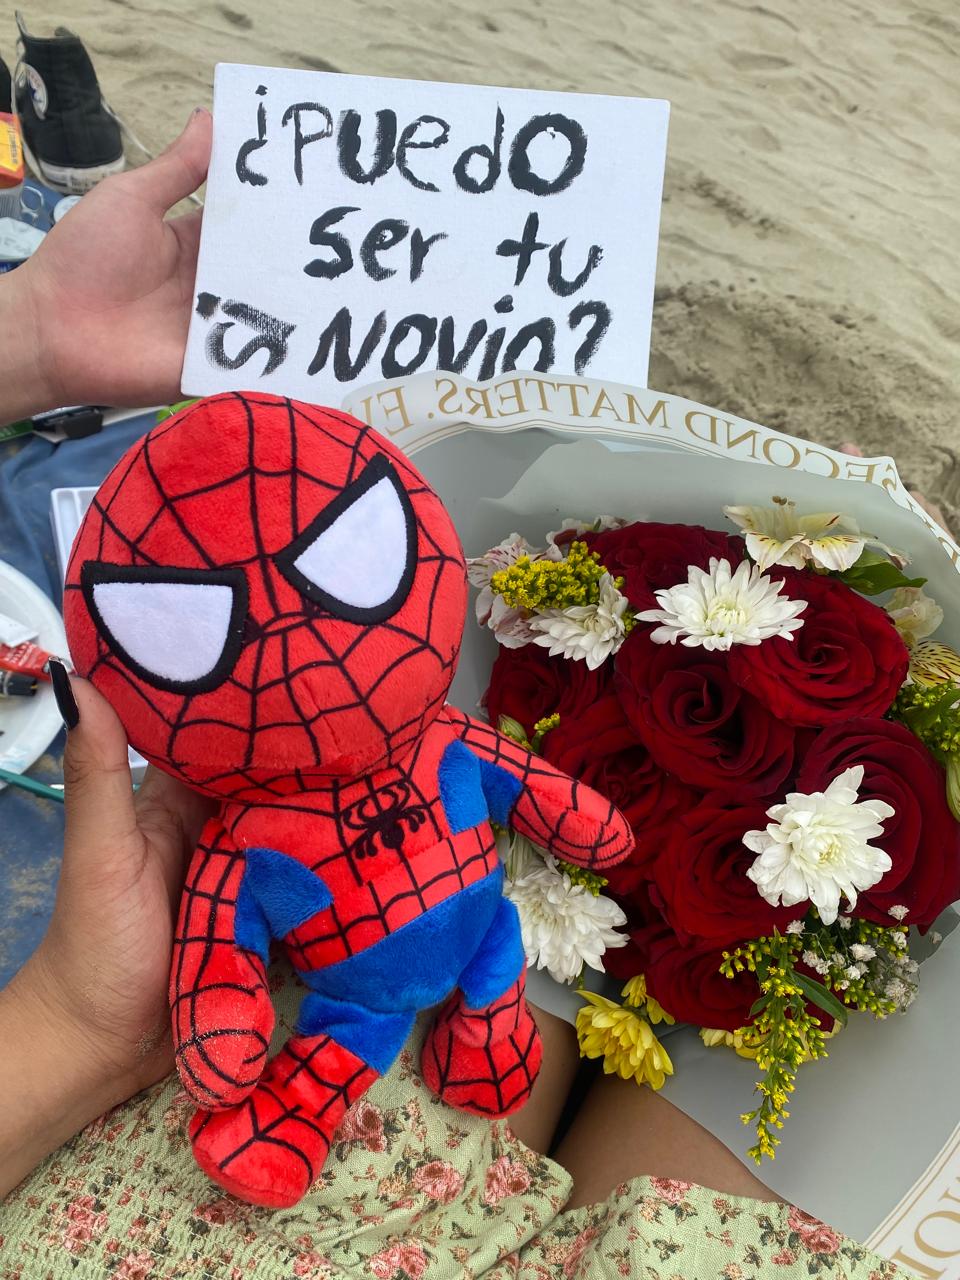 ¿Puedo
ser tu
Novio?
SECOND MATTERS. EV